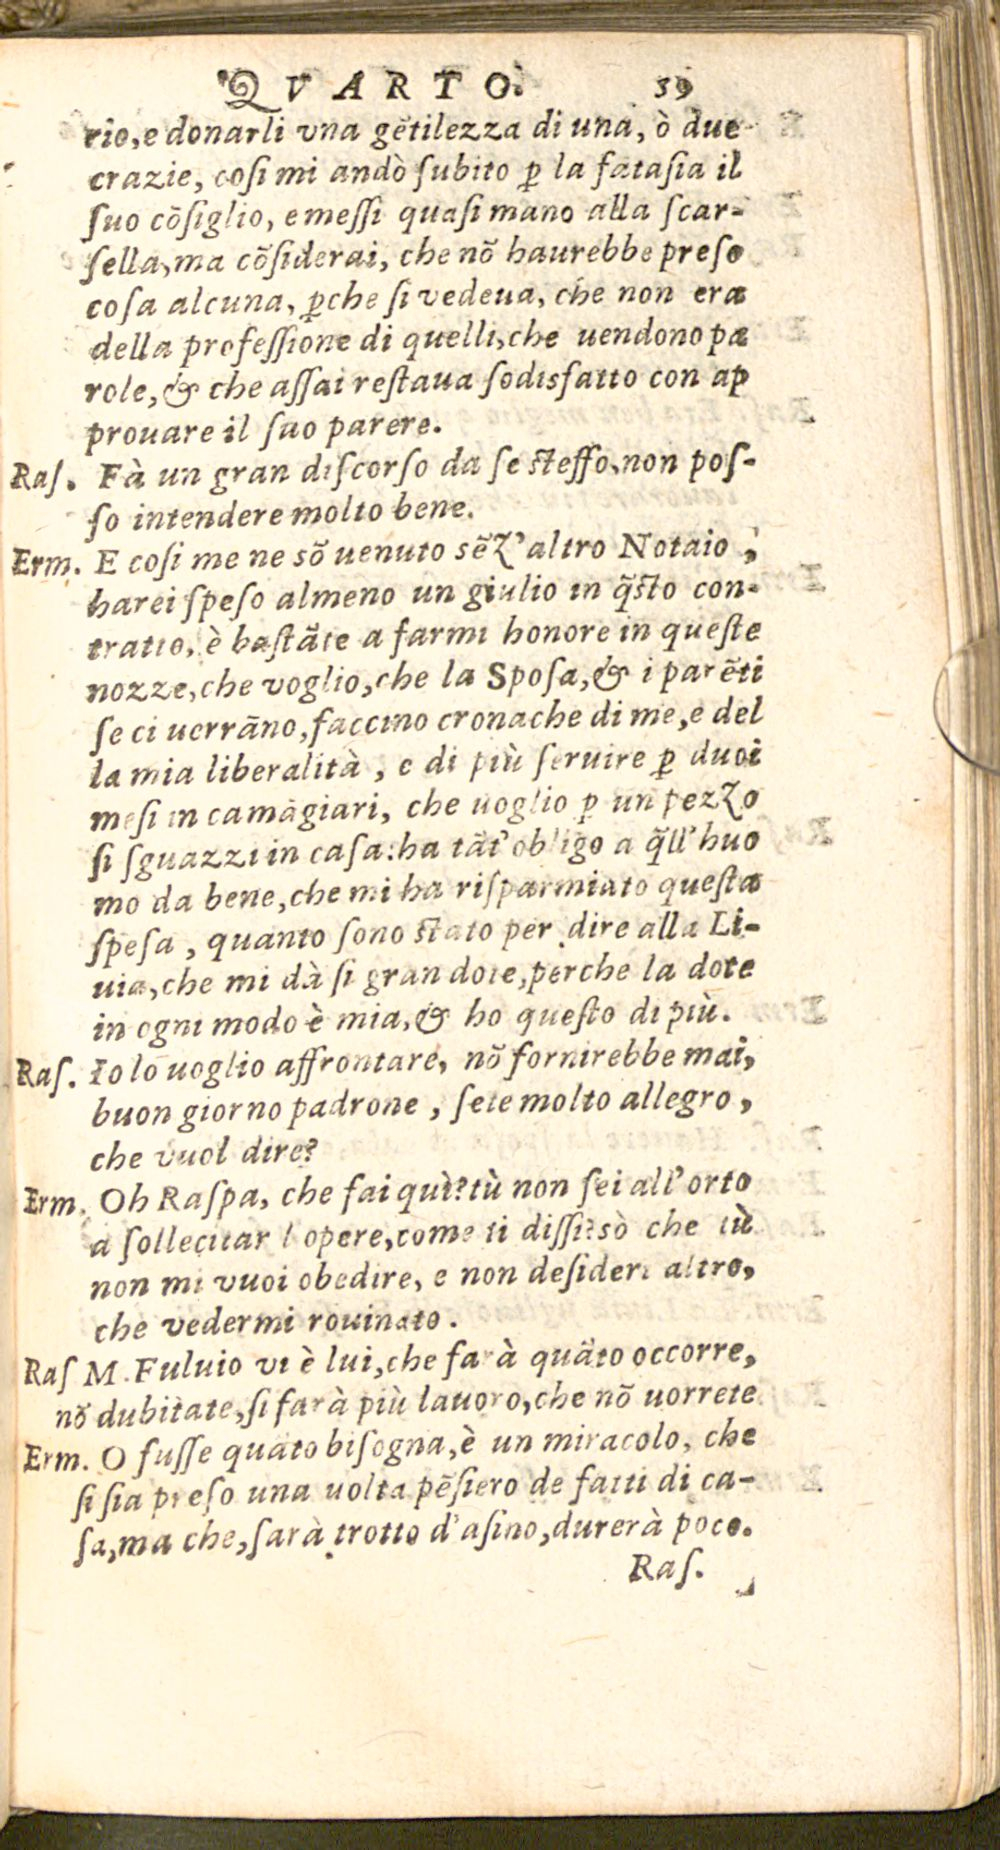 QVARTO. 59
rio, e donarli vna gẽtilezza di una, ò due
crazie, cosi mi andò ſubito ꝑ la fãtaſia il
ſuo cõſiglio, e meſſi quaſi mano alla ſcar-
ſella, ma cõſiderai, che nõ haurebbe preſo
coſa alcuna, ꝑche ſi vedeua, che non era
della profeſſione di quelli, che uendono pa
role, & che aſſai reſtaua ſodisfatto con ap
prouare il ſuo parere.
Raſ. Fà un gran diſcorſo da ſe ſteſſo, non poſ-
ſo intendere molto bene.
Erm. E coſi me ne sõ uenuto sẽz'altro Notaio,
harei ſpeſo almeno un giulio in q̃ſto con-
tratto, è baſtãte a farmi honore in queſte
nozze, che voglio, che la Spoſa, & i parẽti
ſe ci uerrãno, faccino cronache di me, e del
la mia liberalità, e di più ſeruire ꝑ duoi
meſi in camãgiari, che uoglio ꝑ un pezzo
ſi ſguazzi in caſa: ha tãt'obligo a q̃ll'huo
mo da bene, che mi ha riſparmiato queſta
ſpeſa, quanto ſono ſtato per dire alla Li-
uia, che mi dà ſi gran dote, perche la dote
in ogni modo è mia, & ho queſto di più.
Raſ. Io lo uoglio affrontare, nõ fornirebbe mai,
buon giorno padrone, ſete molto allegro,
che vuol dire?
Erm. Oh Raſpa, che fai quì? tù non ſei all'orto
a ſollecitar l'opere, come ti diſſi? sò che tù
non mi vuoi obedire, e non deſideri altro,
che vedermi rouinato.
Raſ M. Fuluio vi è lui, che farà quãto occorre,
nõ dubitate, ſi farà più lauoro, che nõ uorrete
Erm. O fuſſe quãto biſogna, è un miracolo, che
ſi ſia preſo una uolta pẽſiero de fatti di ca-
ſa, ma che, ſarà trotto d'aſino, durerà poco.
Raſ.